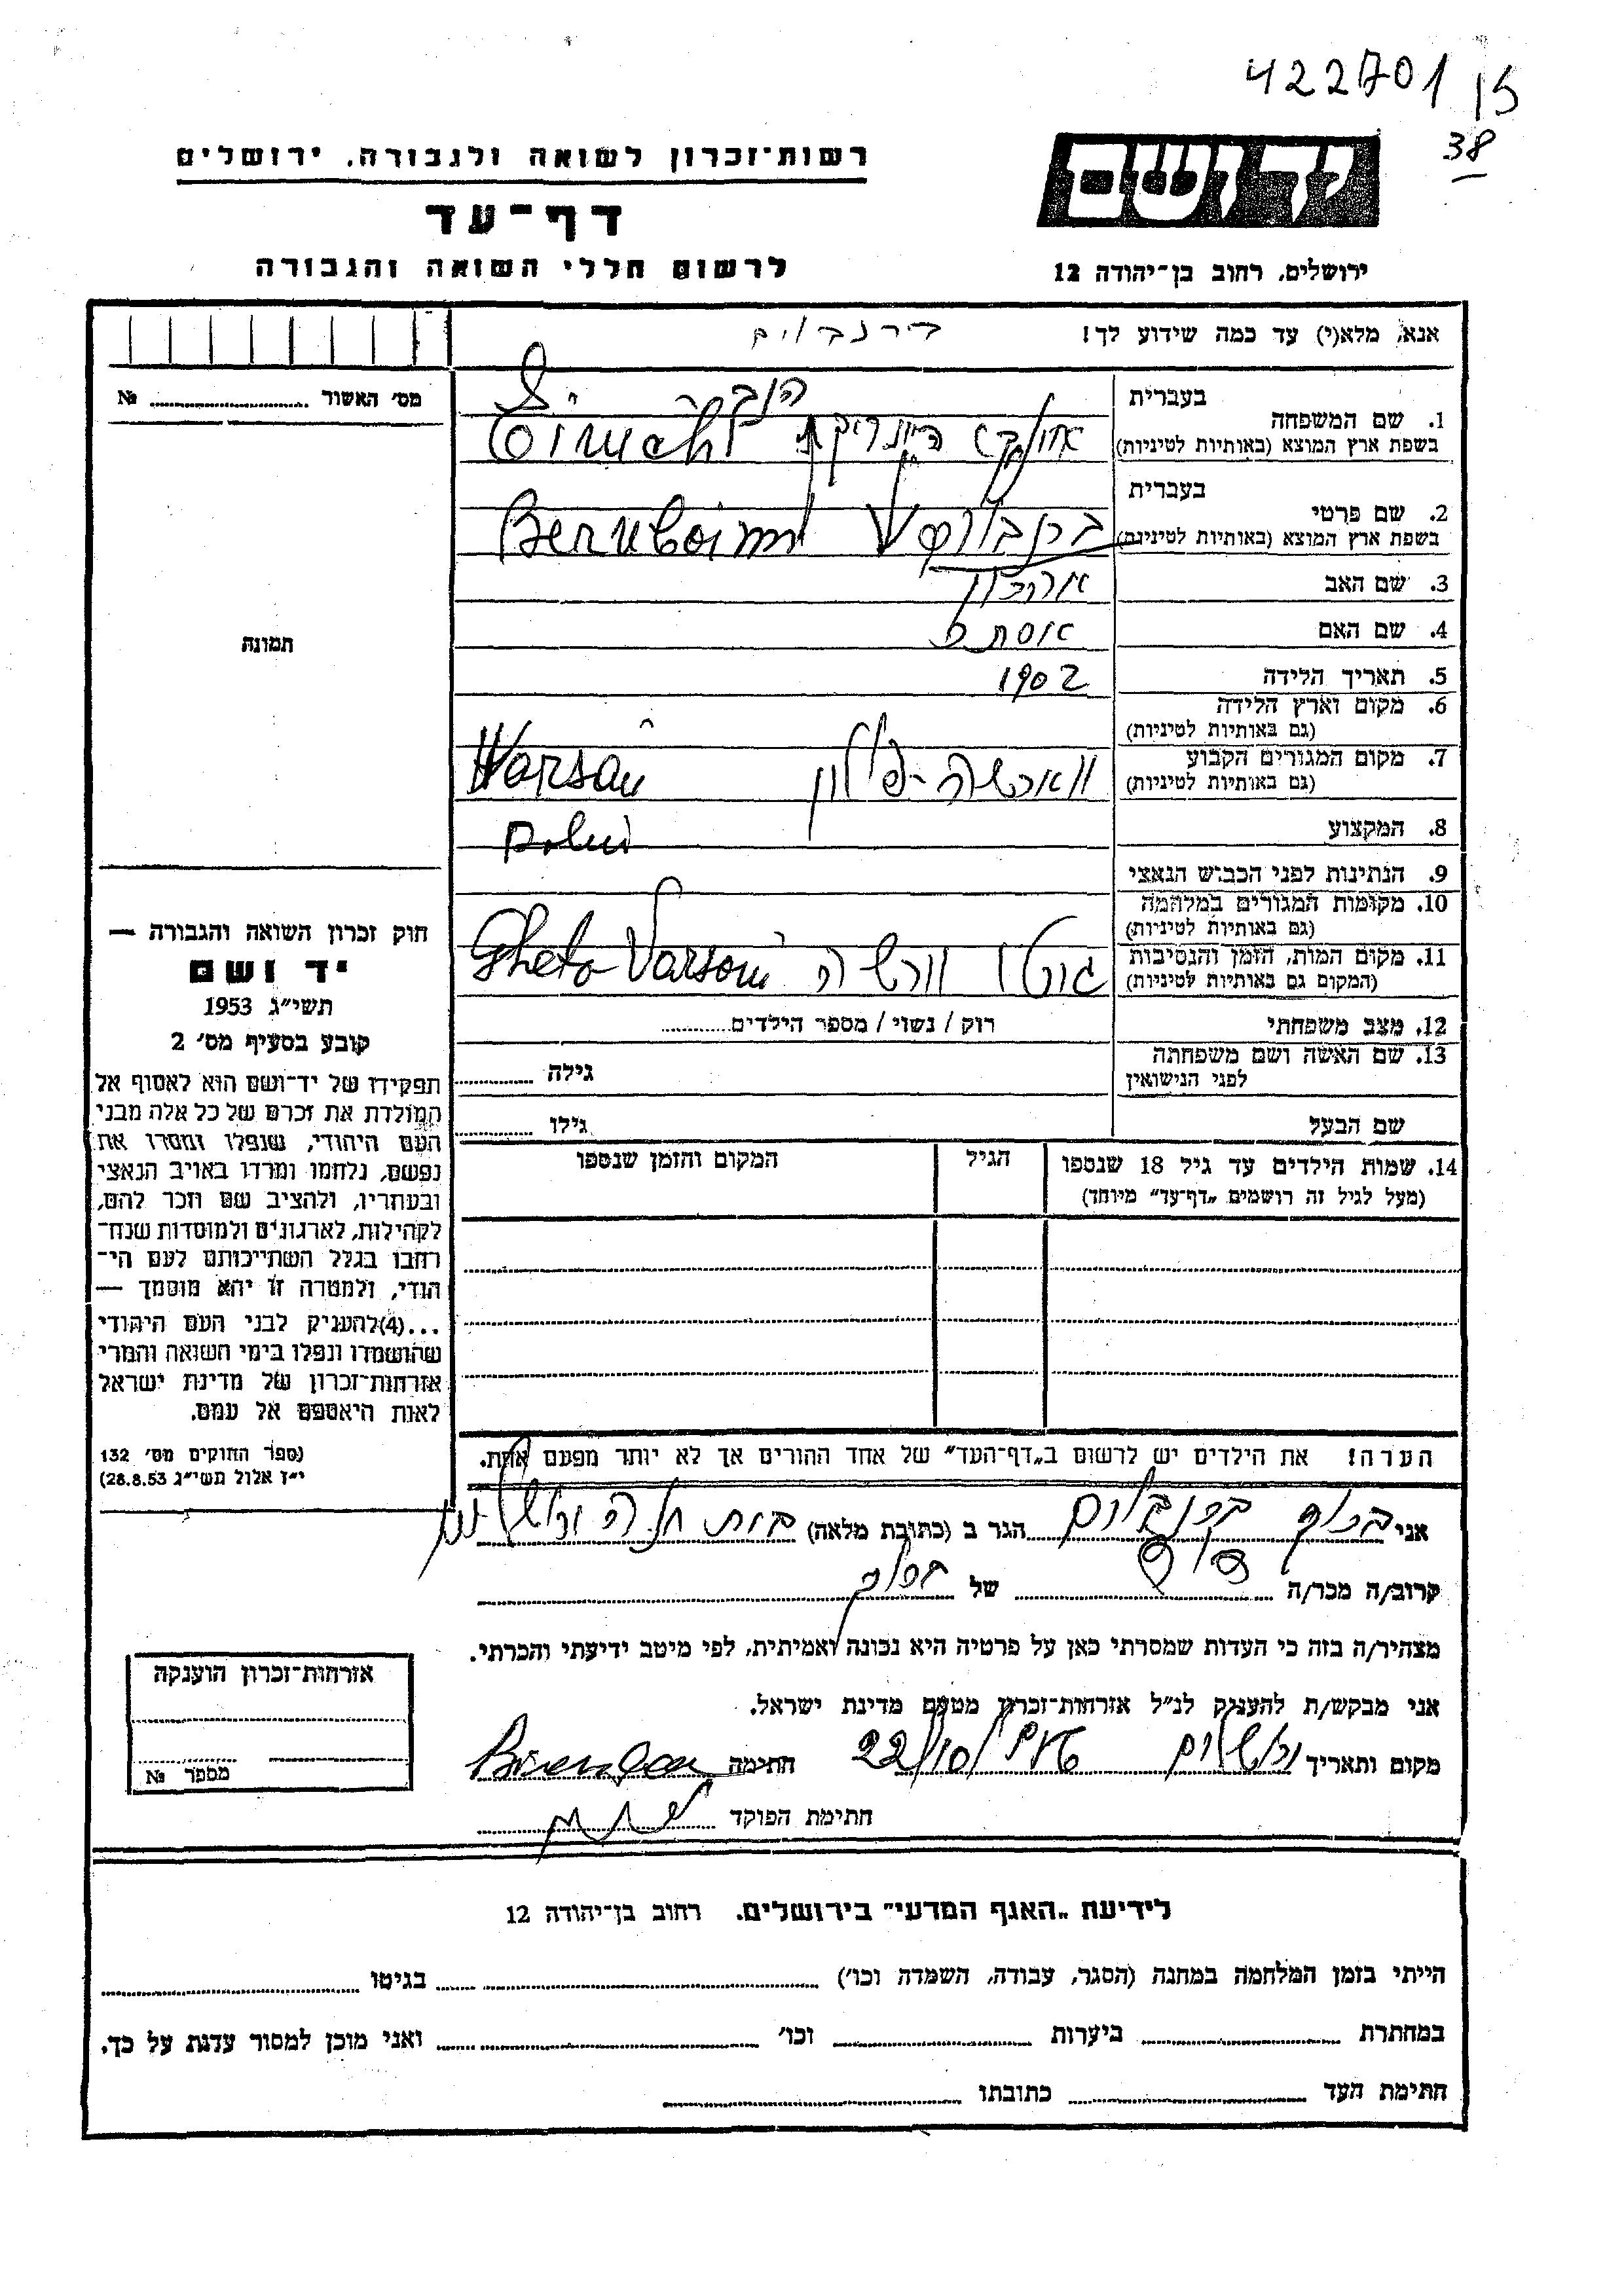 422701 15
38
רשות־זכרון לשואה ולגבורה, ירושלים
יד ושם
דף־עד
לרשום חללי השואה והגבורה
ירושלים, רחוב בן־יהודה 12
אנא, מלא(י) עד כמה שידוע לך!
בירנבוים
מס׳ האשור №
בעברית
1. שם המשפחה
בשפת ארץ המוצא (באותיות לטיניות)
בעברית
2. שם פרטי
בשפת ארץ המוצא (באותיות לטיניות)
Bernboim
3. שם האב
אהרון
4. שם האם
אסתר
5. תאריך הלידה
1902
6. מקום וארץ הלידה
(גם באותיות לטיניות)
7. מקום המגורים הקבוע
(גם באותיות לטיניות)
ווארשה - פולין
Warsau
Poluń
8. המקצוע
9. הנתינות לפני הכבוש הנאצי
10. מקומות המגורים במלחמה
(גם באותיות לטיניות)
11. מקום המות, הזמן והנסיבות
(המקום גם באותיות לטיניות)
גטו וורשה
Gheto Varsou
12. מצב משפחתי
רוק / נשוי / מספר הילדים
13. שם האשה ושם משפחתה
לפני הנישואין
גילה
שם הבעל
גילו
14. שמות הילדים עד גיל 18 שנספו
(מעל לגיל זה רושמים „דף־עד״ מיוחד)
הגיל
המקום והזמן שנספו
הערה! את הילדים יש לרשום ב„דף־העד״ של אחד ההורים אך לא יותר מפעם אחת.
תמונה
חוק זכרון השואה והגבורה —
יד ושם
תשי״ג 1953
קובע בסעיף מס׳ 2
תפקידו של יד־ושם הוא לאסוף אל
המולדת את זכרם של כל אלה מבני
העם היהודי, שנפלו ומסרו את
נפשם, נלחמו ומרדו באויב הנאצי
ובעוזריו, ולהציב שם וזכר להם,
לקהילות, לארגונים ולמוסדות שנח־
רבו בגלל השתייכותם לעם הי־
הודי, ולמטרה זו יהא מוסמך —
...(4)להעניק לבני העם היהודי
שהושמדו ונפלו בימי השואה והמרי
אזרחות־זכרון של מדינת ישראל
לאות היאספם אל עמם.
(ספר החוקים מס׳ 132
י״ז אלול תשי״ג 28.8.53)
אני ברוך ברנבוים הגר ב (כתובת מלאה)
קרוב/ה מכר/ה של
מצהיר/ה בזה כי העדות שמסרתי כאן על פרטיה היא נכונה ואמיתית, לפי מיטב ידיעתי והכרתי.
אני מבקש/ת להעניק לנ״ל אזרחות־זכרון מטעם מדינת ישראל.
מקום ותאריך ירושלים 22/10 חתימה
חתימת הפוקד
אזרחות־זכרון הוענקה
מספר №
לידיעת „האגף המדעי״ בירושלים, רחוב בן־יהודה 12
הייתי בזמן המלחמה במחנה (הסגר, עבודה, השמדה וכו׳) בגיטו
במחתרת ביערות וכו׳ ואני מוכן למסור עדות על כך.
חתימת העד כתובתו